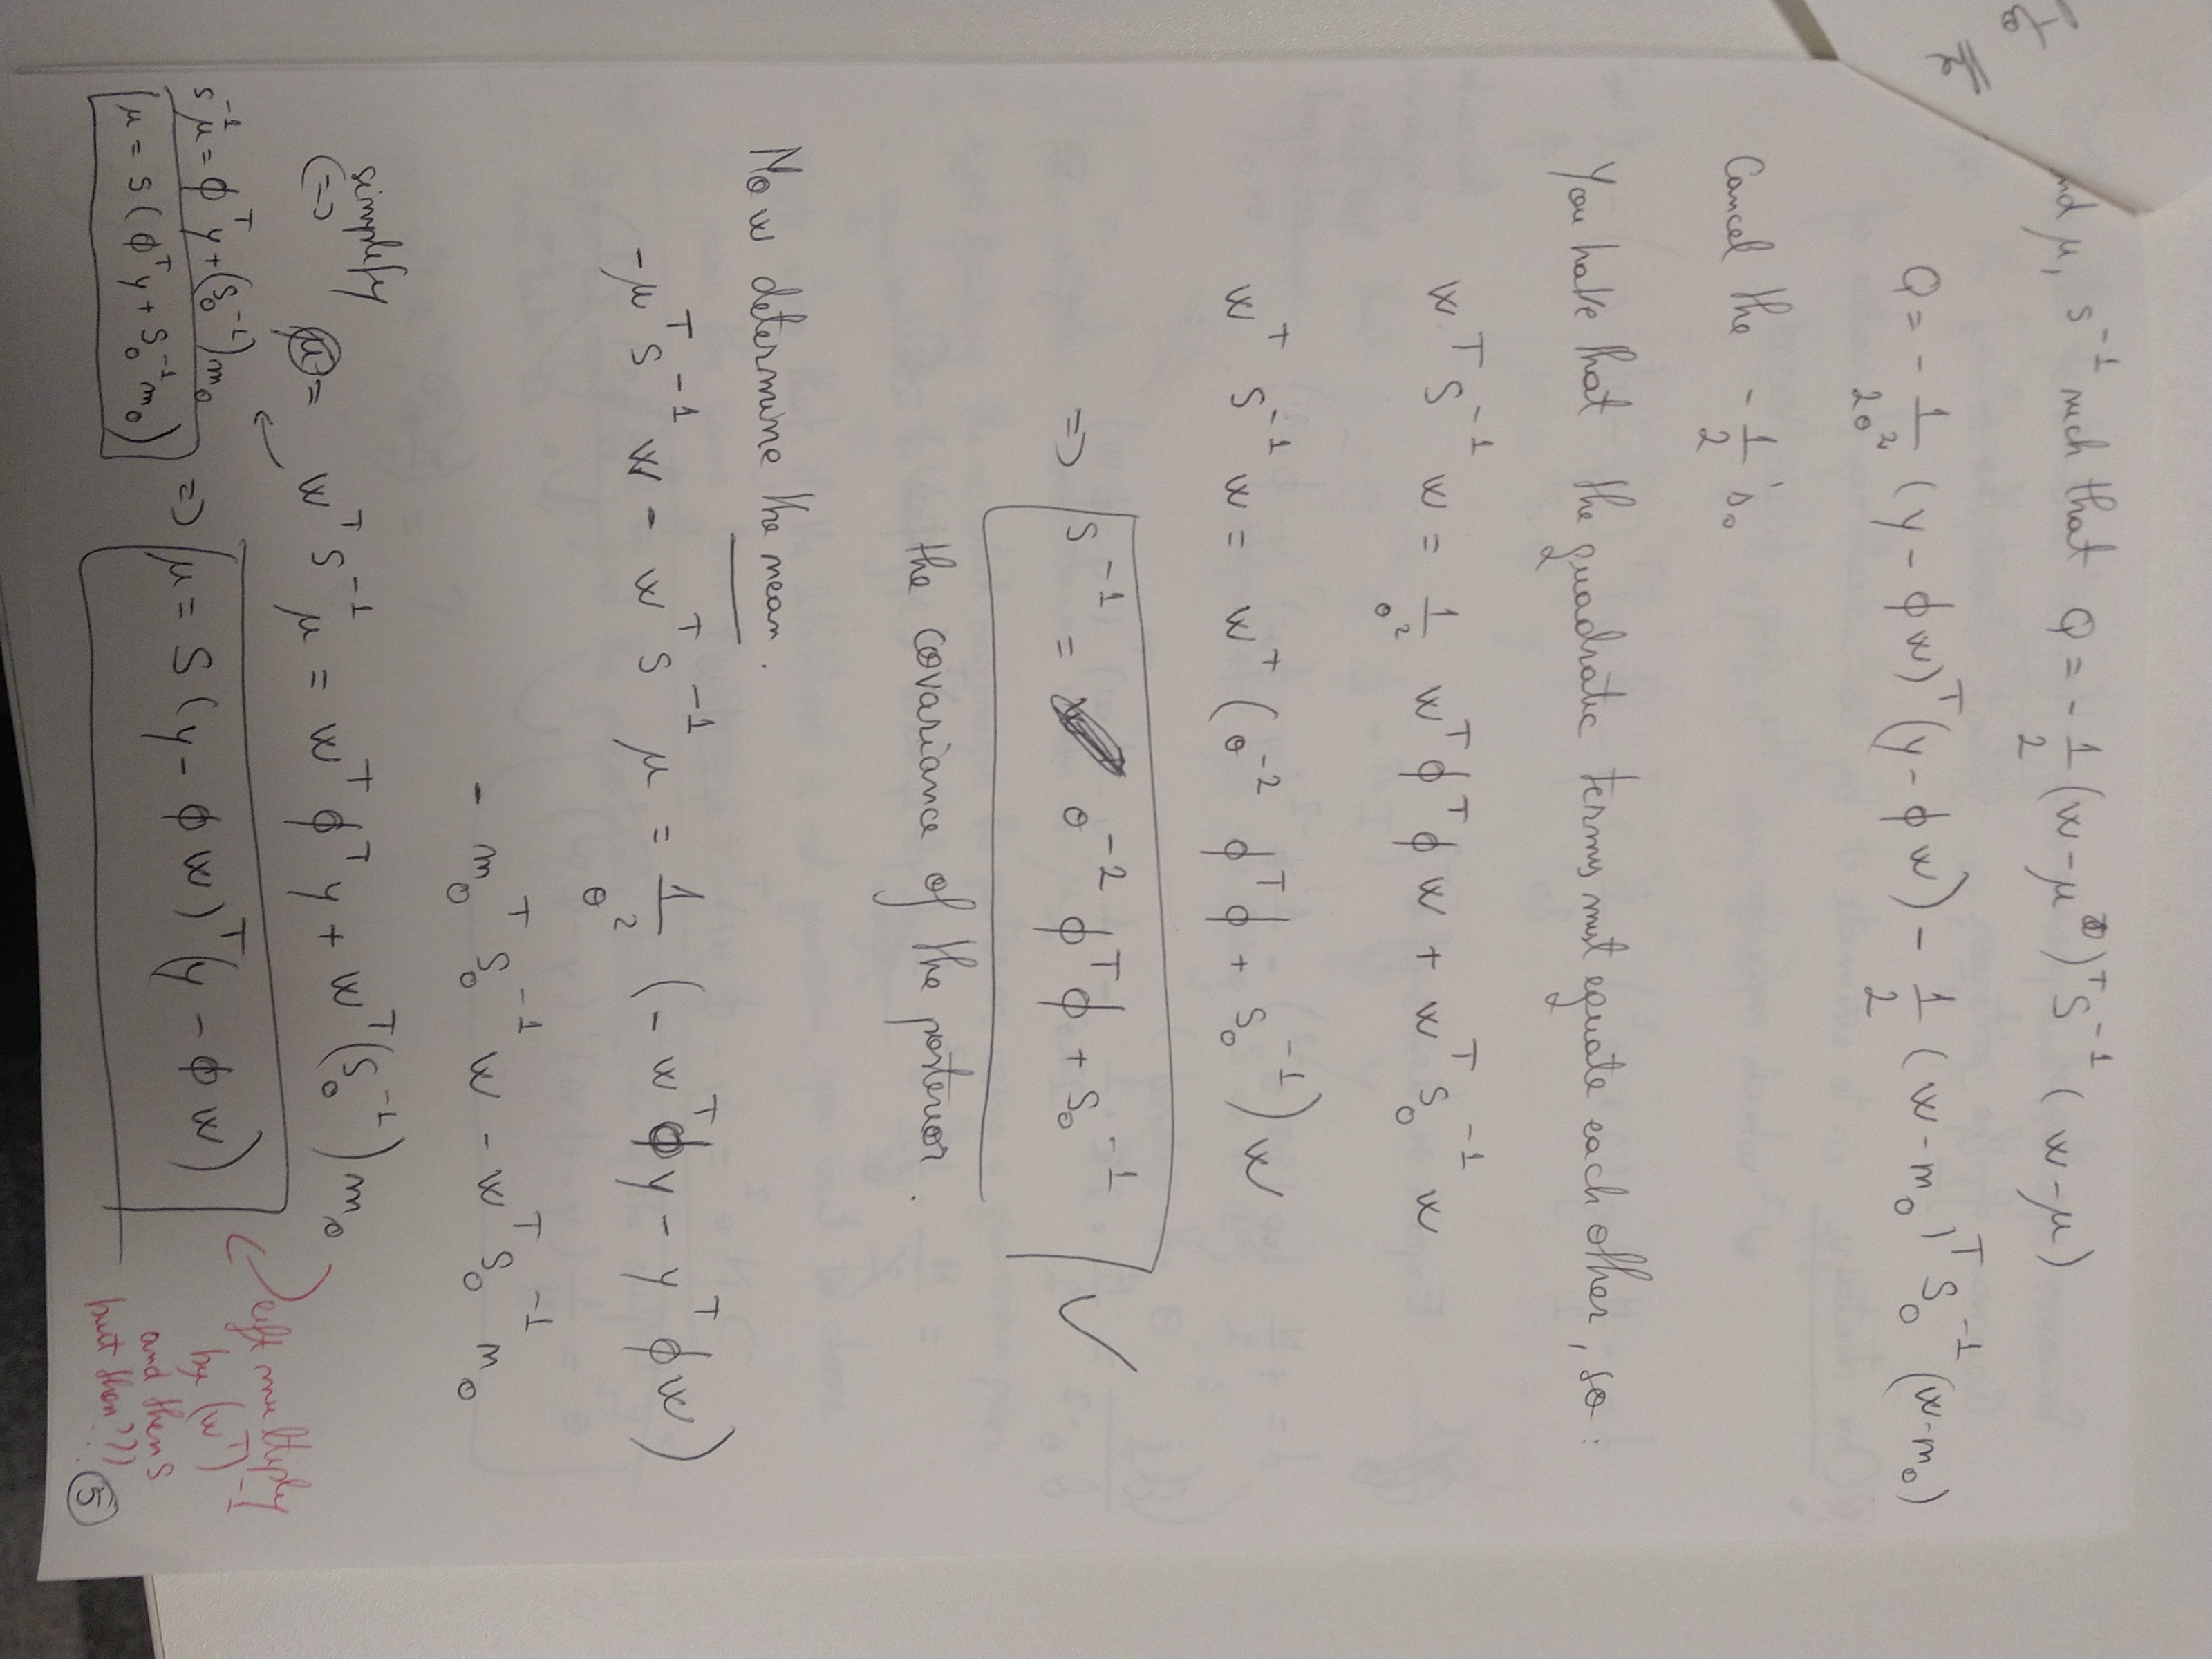 nd μ, S⁻¹ such that Q = - 1/2 (w-μ)ᵀ S⁻¹ (w-μ)
Q = - 1/2σ² (y - ϕw)ᵀ (y - ϕw) - 1/2 (w-m₀)ᵀ S₀⁻¹ (w-m₀)
Cancel the - 1/2 's.
You have that the quadratic terms must equate each other, so :
wᵀ S⁻¹ w = 1/σ² wᵀ ϕᵀ ϕ w + wᵀ S₀⁻¹ w
wᵀ S⁻¹ w = wᵀ (σ⁻² ϕᵀ ϕ + S₀⁻¹) w
=> S⁻¹ = σ⁻² ϕᵀ ϕ + S₀⁻¹ ✓
the covariance of the posterior.
Now determine the mean.
-μᵀ S⁻¹ w - wᵀ S⁻¹ μ = 1/σ² (- wᵀ ϕ y - yᵀ ϕ w)
- m₀ᵀ S₀⁻¹ w - wᵀ S₀⁻¹ m₀
simplify
(=> μ = wᵀ S⁻¹ μ = wᵀ ϕᵀ y + wᵀ (S₀⁻¹) m₀
S⁻¹ μ = ϕᵀ y + (S₀⁻¹) m₀
μ = S (ϕᵀ y + S₀⁻¹ m₀)
=> μ = S (y - ϕ w)ᵀ (y - ϕ w)
left multiply
by (wᵀ)⁻¹
and then S
but then???
5